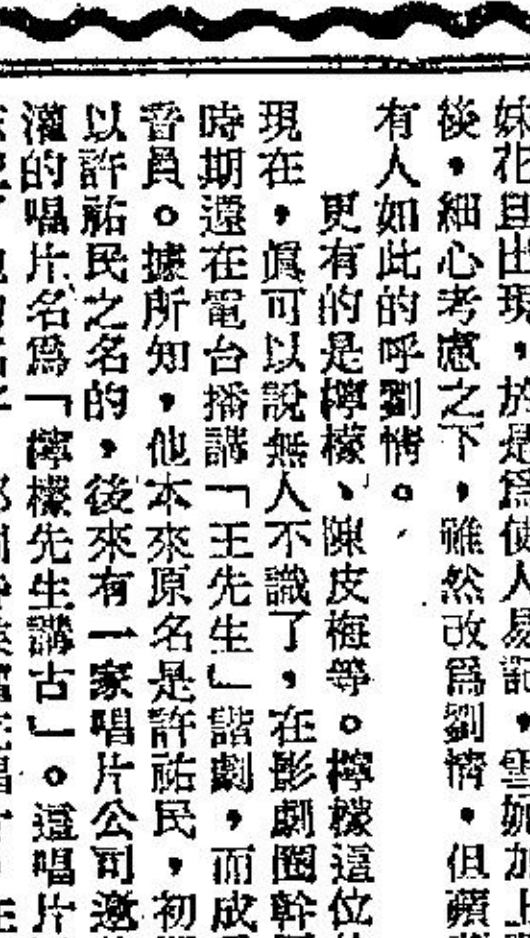 妹花且出現，於是爲使人易記，雪妮加上
後，細心考慮之下，雖然改爲劉情，但蘋
有人如此的呼劉情。
更有的是檸檬、陳皮梅等。檸檬這位
現在，眞可以說無人不識了，在影劇圈幹
時期還在電台播講「王先生」諧劇，而成
音員。據所知，他本來原名是許祐民，初
以許祐民之名的，後來有一家唱片公司邀
灌的唱片名爲「檸檬先生講古」。這唱片